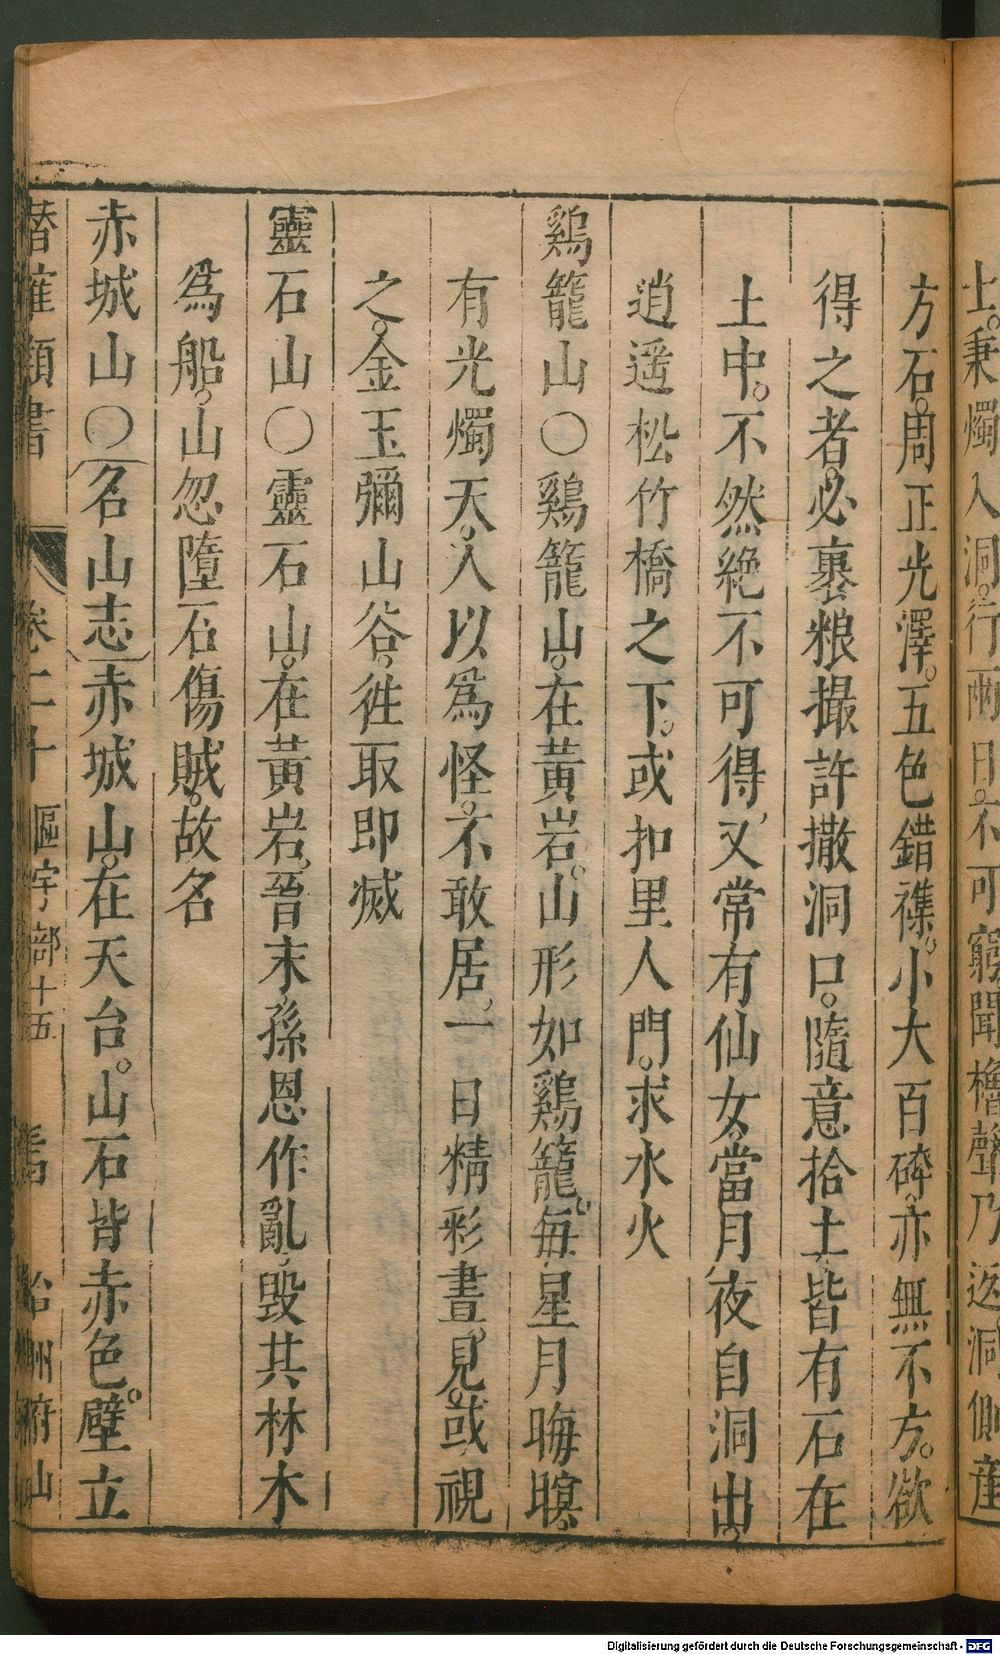 上。秉燭入洞。行兩日。不可窮。聞櫓聲乃返。洞側産
方石。周正光澤。五色錯襍。小大百碎。亦無不方。欲
得之者。必裹粮撮許撒洞口。隨意拾土。皆有石在
土中。不然絶不可得。又常有仙女。當月夜自洞出。
逍遥松竹橋之下。或扣里人門。求水火
鷄籠山〇鷄籠山。在黄岩。山形如鷄籠。每星月晦暝。
有光燭天。人以爲怪。不敢居。一日精彩晝見。或視
之。金玉彌山谷。徃取即滅
靈石山〇靈石山。在黄岩。晉末孫恩作亂。毁其林木
爲船。山忽墮石傷賊。故名
赤城山〇名山志赤城山。在天台。山石皆赤色。壁立
潛確類書 卷二十 區宇部十五 台州府山
Digitalisierung gefördert durch die Deutsche Forschungsgemeinschaft - DFG